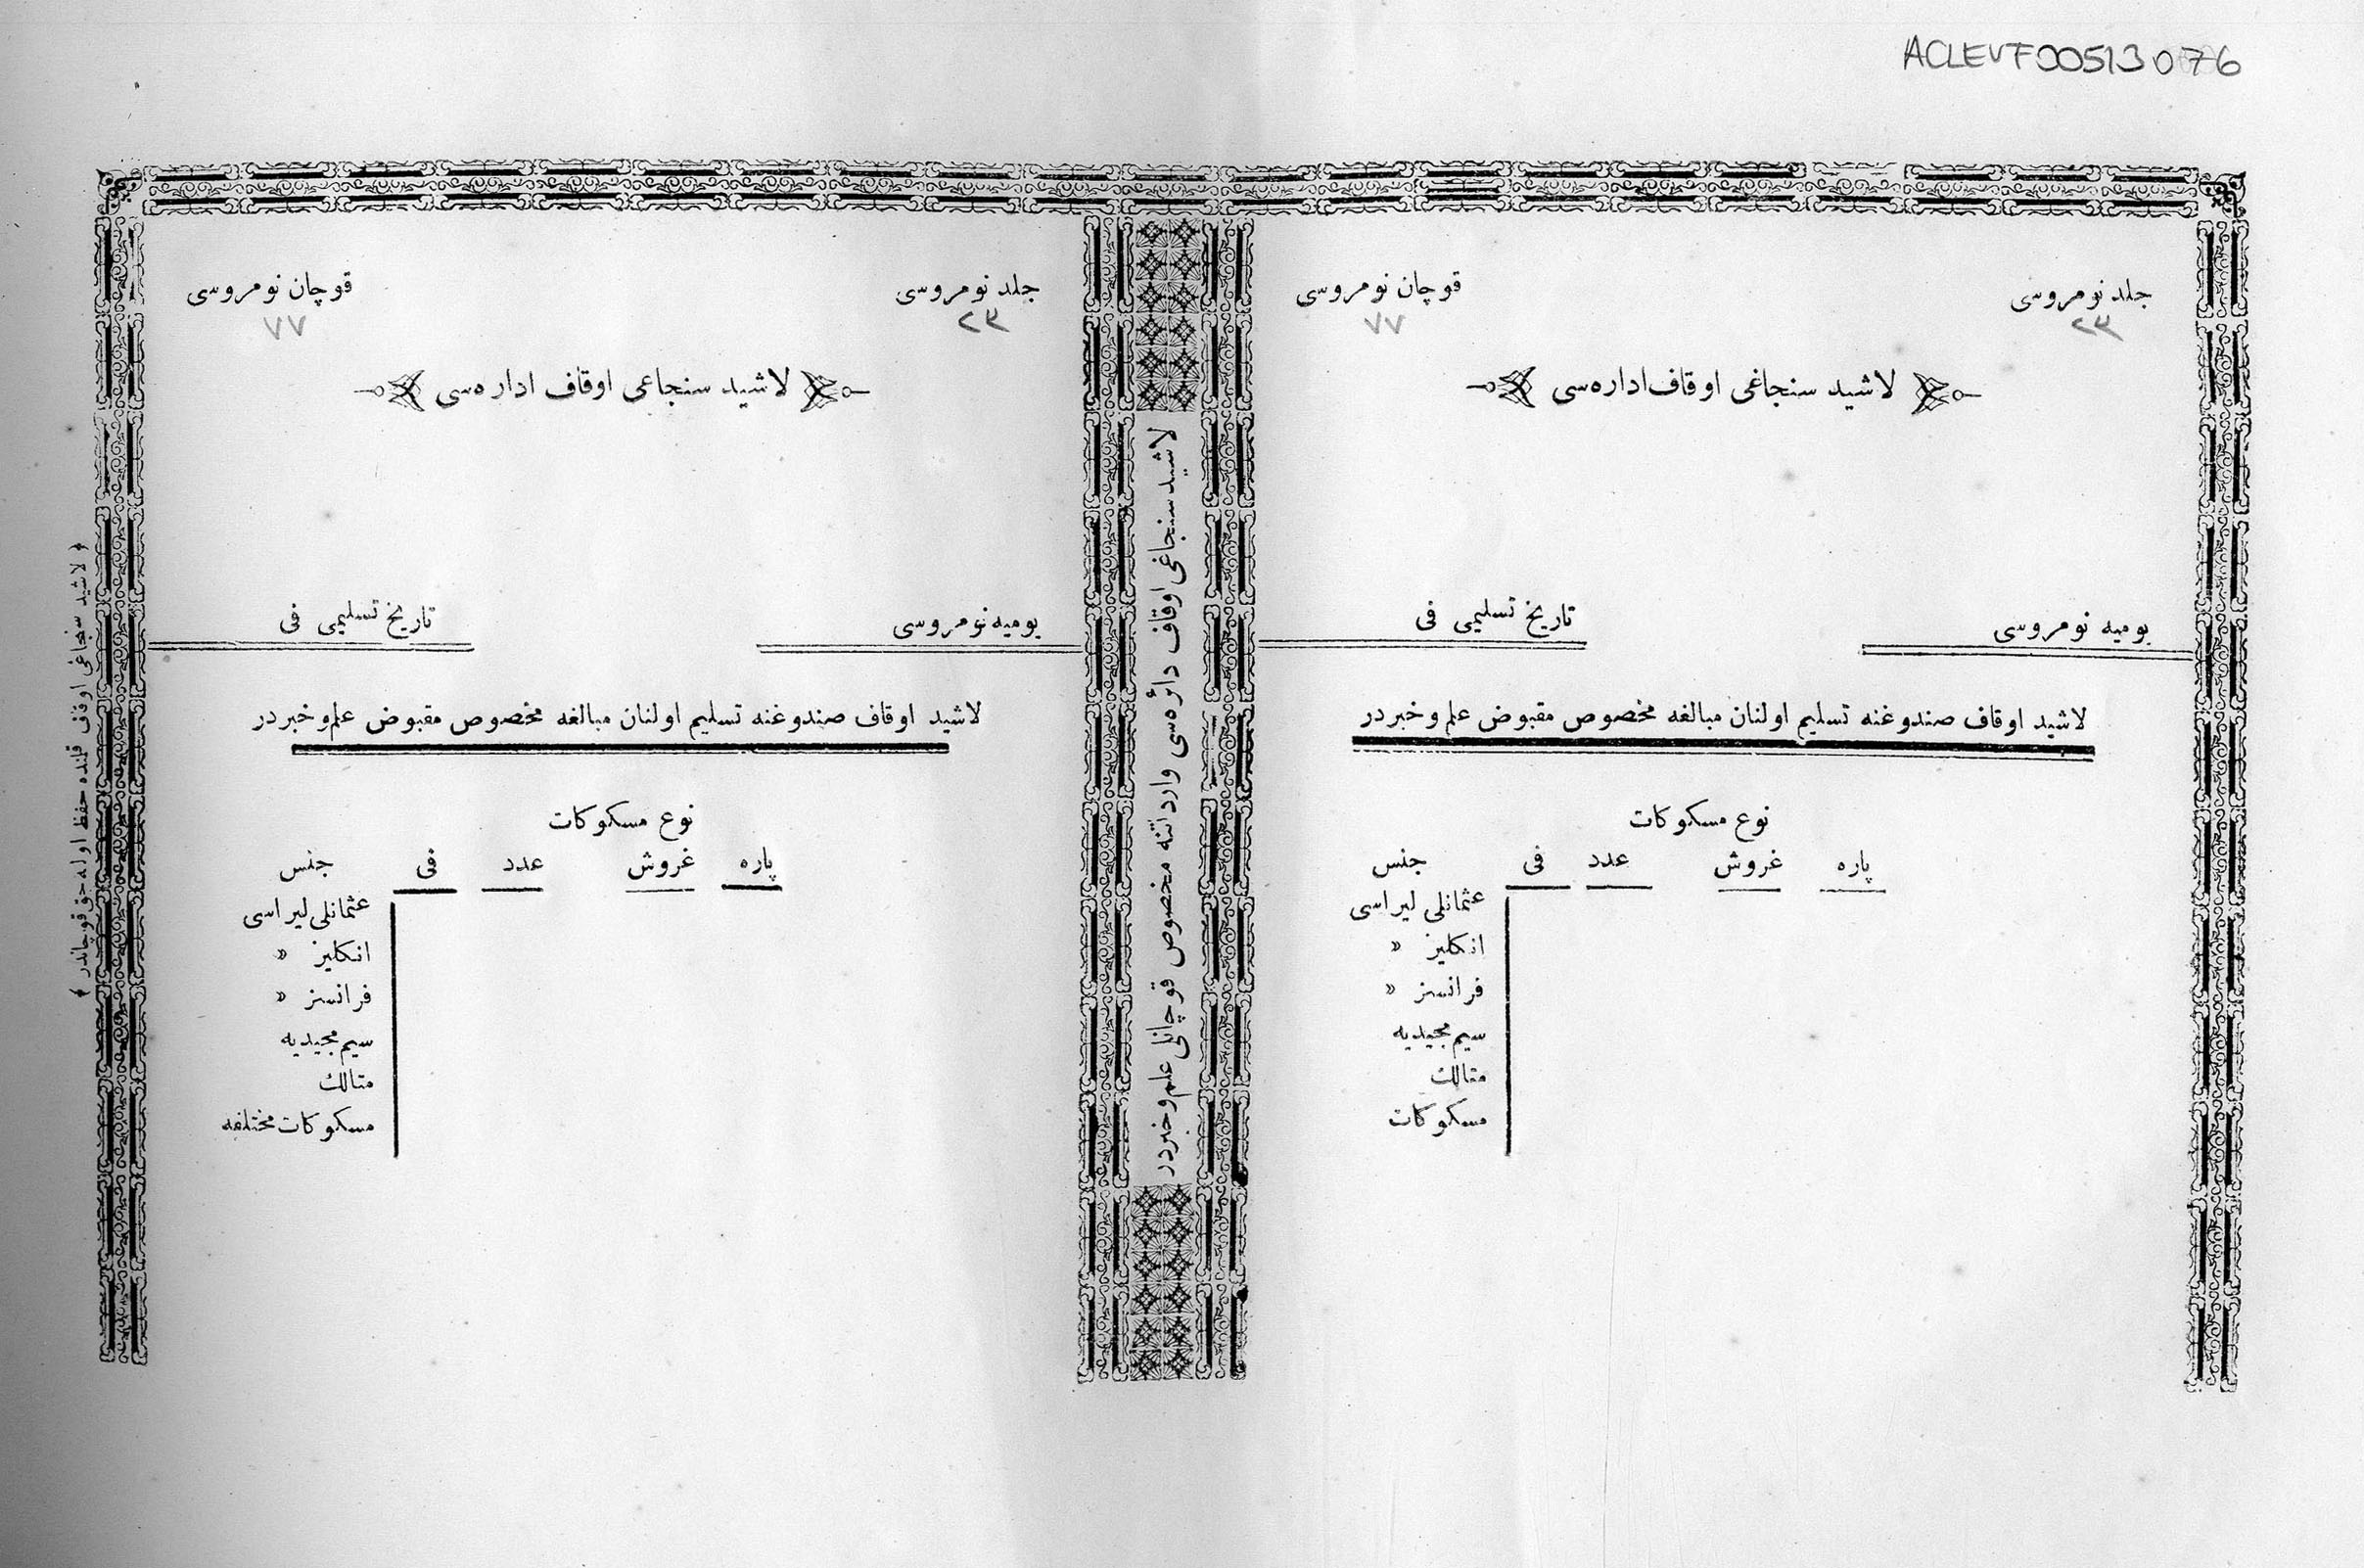 ACLEVF00513076
جلد نومروسی
٢٣
قوچان نومروسی
٧٧
لاشید سنجاغی اوقاف اداره‌سی
یومیه نومروسی
تاریخ تسلیمی فی
لاشید اوقاف صندوغنه تسلیم اولنان مبالغه مخصوص مقبوض علم و خبردر
نوع مسکوکات
پاره غروش عدد فی جنس
عثمانلی لیراسی
انکلیز »
فرانسز »
سیم مجیدیه
متالك
مسکوکات
لاشید سنجاغی اوقاف دائره‌سی وارداتنه مخصوص قوچانلی علم و خبردر
جلد نومروسی
٢٣
قوچان نومروسی
٧٧
لاشید سنجاغی اوقاف اداره‌سی
یومیه نومروسی
تاریخ تسلیمی فی
لاشید اوقاف صندوغنه تسلیم اولنان مبالغه مخصوص مقبوض علم و خبردر
نوع مسکوکات
پاره غروش عدد فی جنس
عثمانلی لیراسی
انکلیز »
فرانسز »
سیم مجیدیه
متالك
مسکوکات مختلفه
﴿ لاشید سنجاغی اوقاف حفظ اوله‌جق قوچاندر ﴾